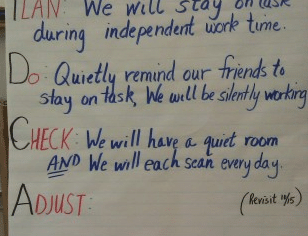 PLAN: We will stay on task
during independent work time.
Do: Quietly remind our friends to
stay on task, We will be silently working
CHECK: We will have a quiet room
AND We will each scan every day.
ADJUST: (Revisit 11/15)